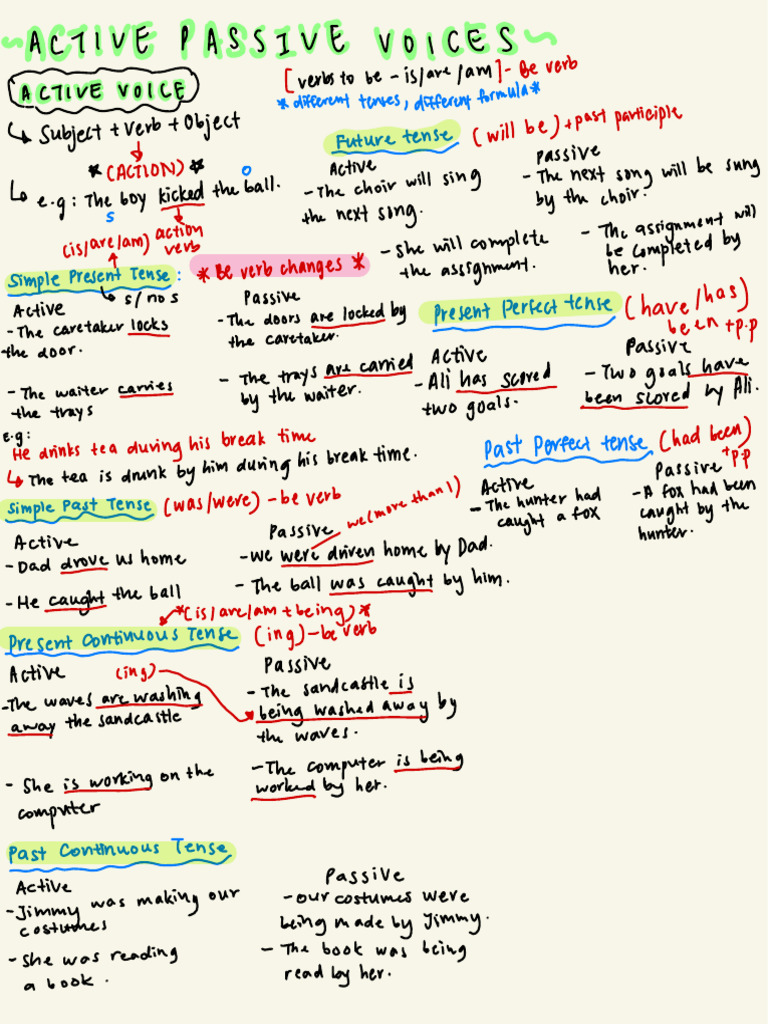 ~ACTIVE PASSIVE VOICES~
ACTIVE VOICE
↳ Subject + Verb + Object
*(ACTION)*
↳ e.g: The boy kicked the ball.
s
o
action verb
[verbs to be - is/are/am] - Be verb
*different tenses, different formula*
(is/are/am)
Simple Present Tense:
s/no s
*Be verb changes*
Active
- The caretaker locks
the door.
- The waiter carries
the trays
Passive
- The doors are locked by
the caretaker.
- The trays are carried
by the waiter.
e.g:
He drinks tea during his break time
↳ The tea is drunk by him during his break time.
Simple Past Tense (was/were) - be verb
Active
- Dad drove us home
- He caught the ball
Passive
we(more than 1)
- We were driven home by Dad.
- The ball was caught by him.
*(is/are/am + being)*
Present Continuous Tense (ing) - be verb
Active
(ing)
- The waves are washing
away the sandcastle
- She is working on the
computer
Passive
- The sandcastle is
being washed away by
the waves.
- The computer is being
worked by her.
Past Continuous Tense
Active
- Jimmy was making our
costumes
- She was reading
a book.
Passive
- Our costumes were
being made by Jimmy.
- The book was being
read by her.
Future tense (will be) + past participle
Active
- The choir will sing
the next song.
- She will complete
the assignment.
Passive
- The next song will be sung
by the choir.
- The assignment will
be completed by
her.
Present Perfect tense (have/has)
been + p.p
Active
- Ali has scored
two goals.
Passive
- Two goals have
been scored by Ali.
Past Perfect tense (had been)
+ p.p
Active
- The hunter had
caught a fox
Passive
- A fox had been
caught by the
hunter.